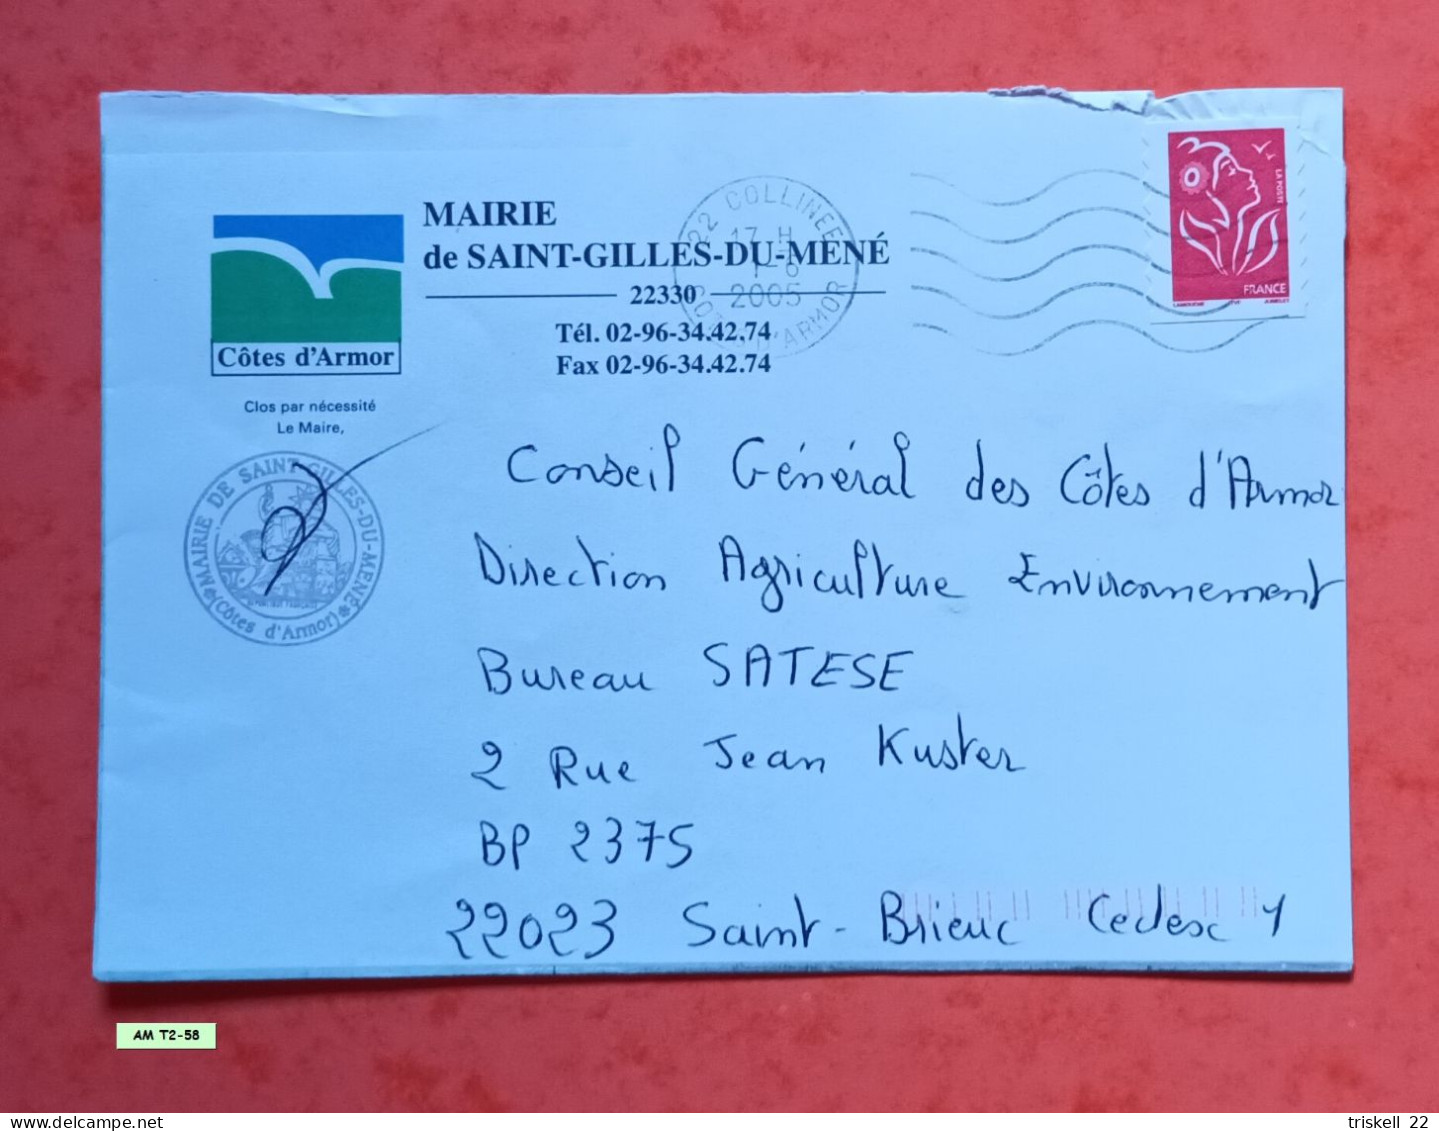 MAIRIE
de SAINT-GILLES-DU-MENÉ
22330
Tél. 02-96-34.42.74
Fax 02-96-34.42.74
Côtes d'Armor
Clos par nécessité
Le Maire,
MAIRIE DE SAINT-GILLES-DU-MENÉ
(Côtes d'Armor)
22 COLLINEE
17 H
1-6
2005
D'ARMOR
LA POSTE
FRANCE
LAMOUCHE JUMELET
Conseil Général des Côtes d'Armor
Direction Agriculture Environnement
Bureau SATESE
2 Rue Jean Kuster
BP 2375
22023 Saint-Brieuc Cedex 1
AM T2-58
triskell 22